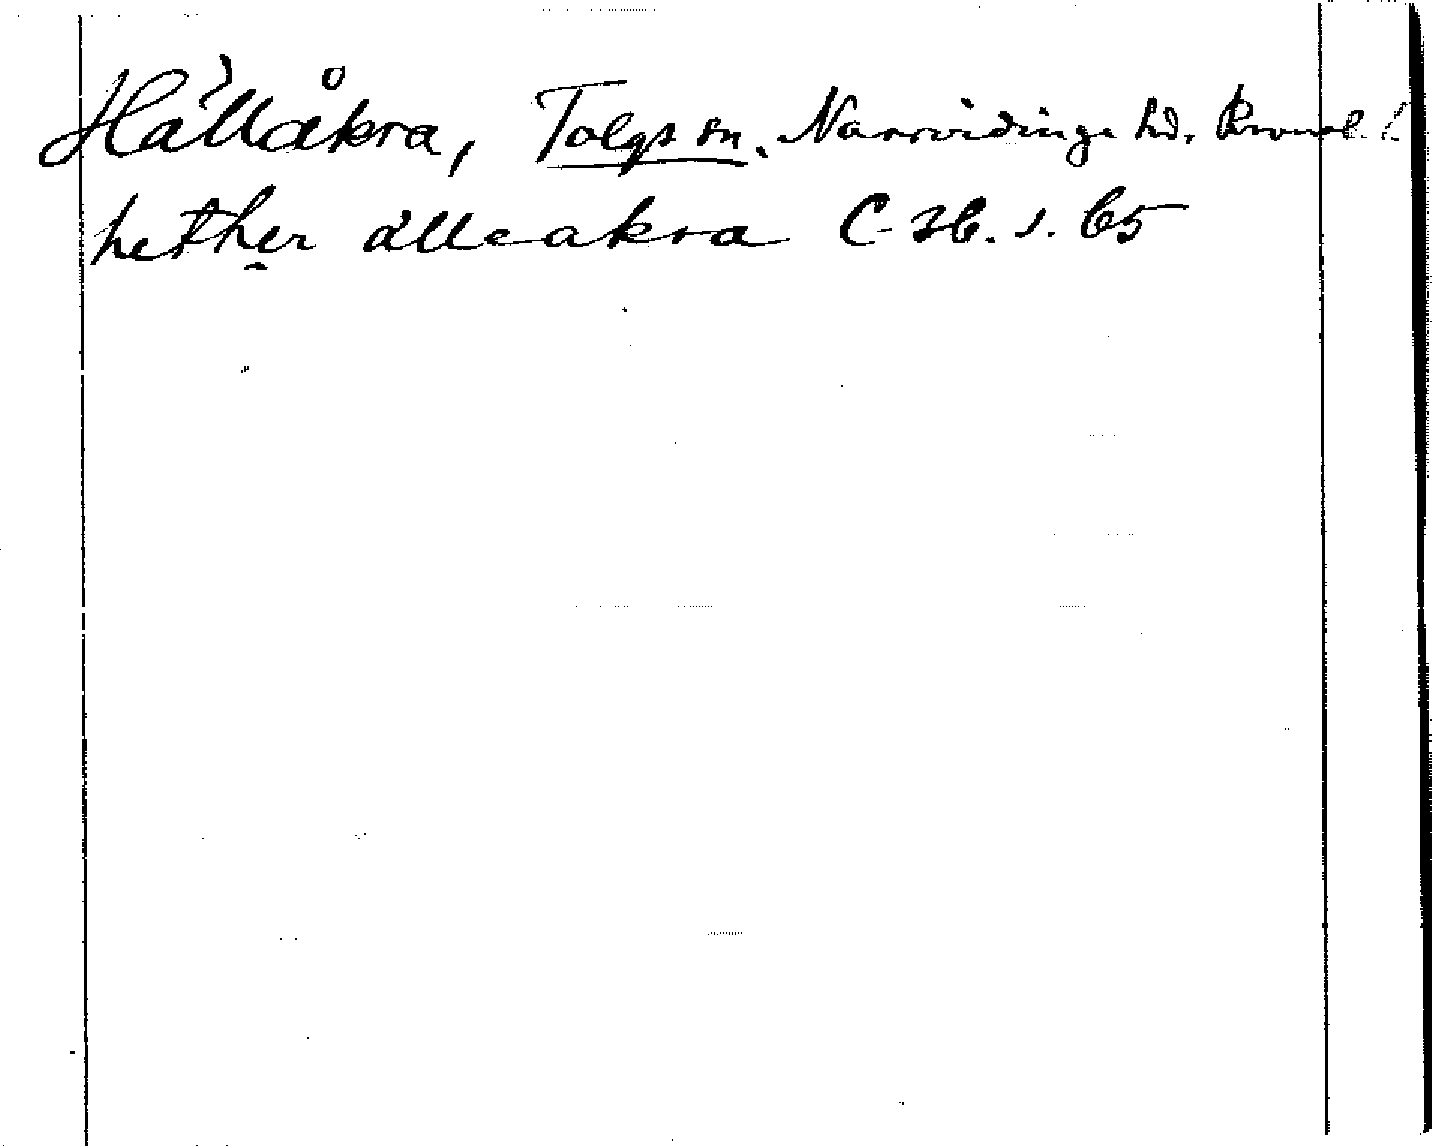 Hållåkra, Tolgs sn. Norrvidinge hd. Kronob. l.
hether ålleakra C 36. s. 65